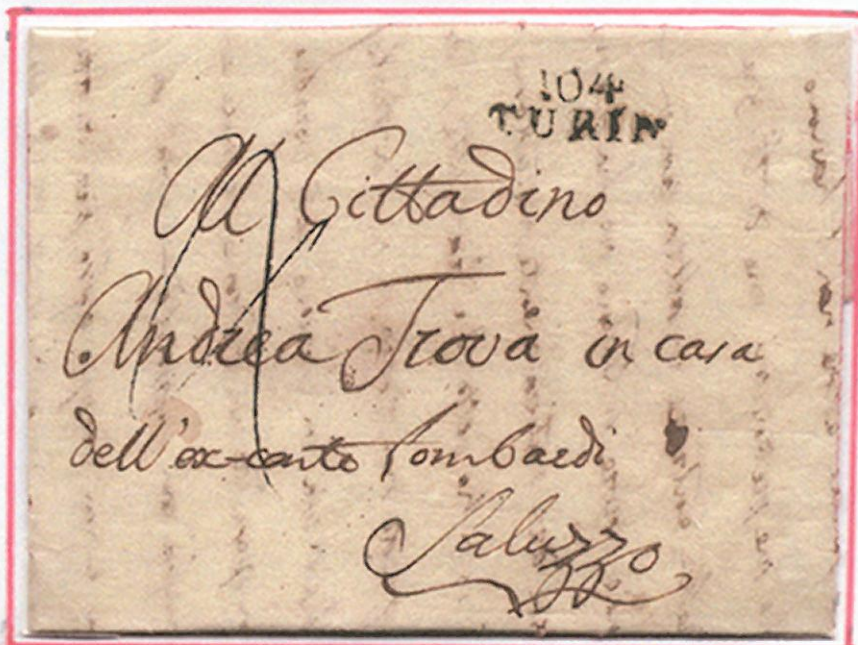 104
TURIN
Al Cittadino
Andrea Trova in casa
dell'ex-conte Lombardi
Saluzzo